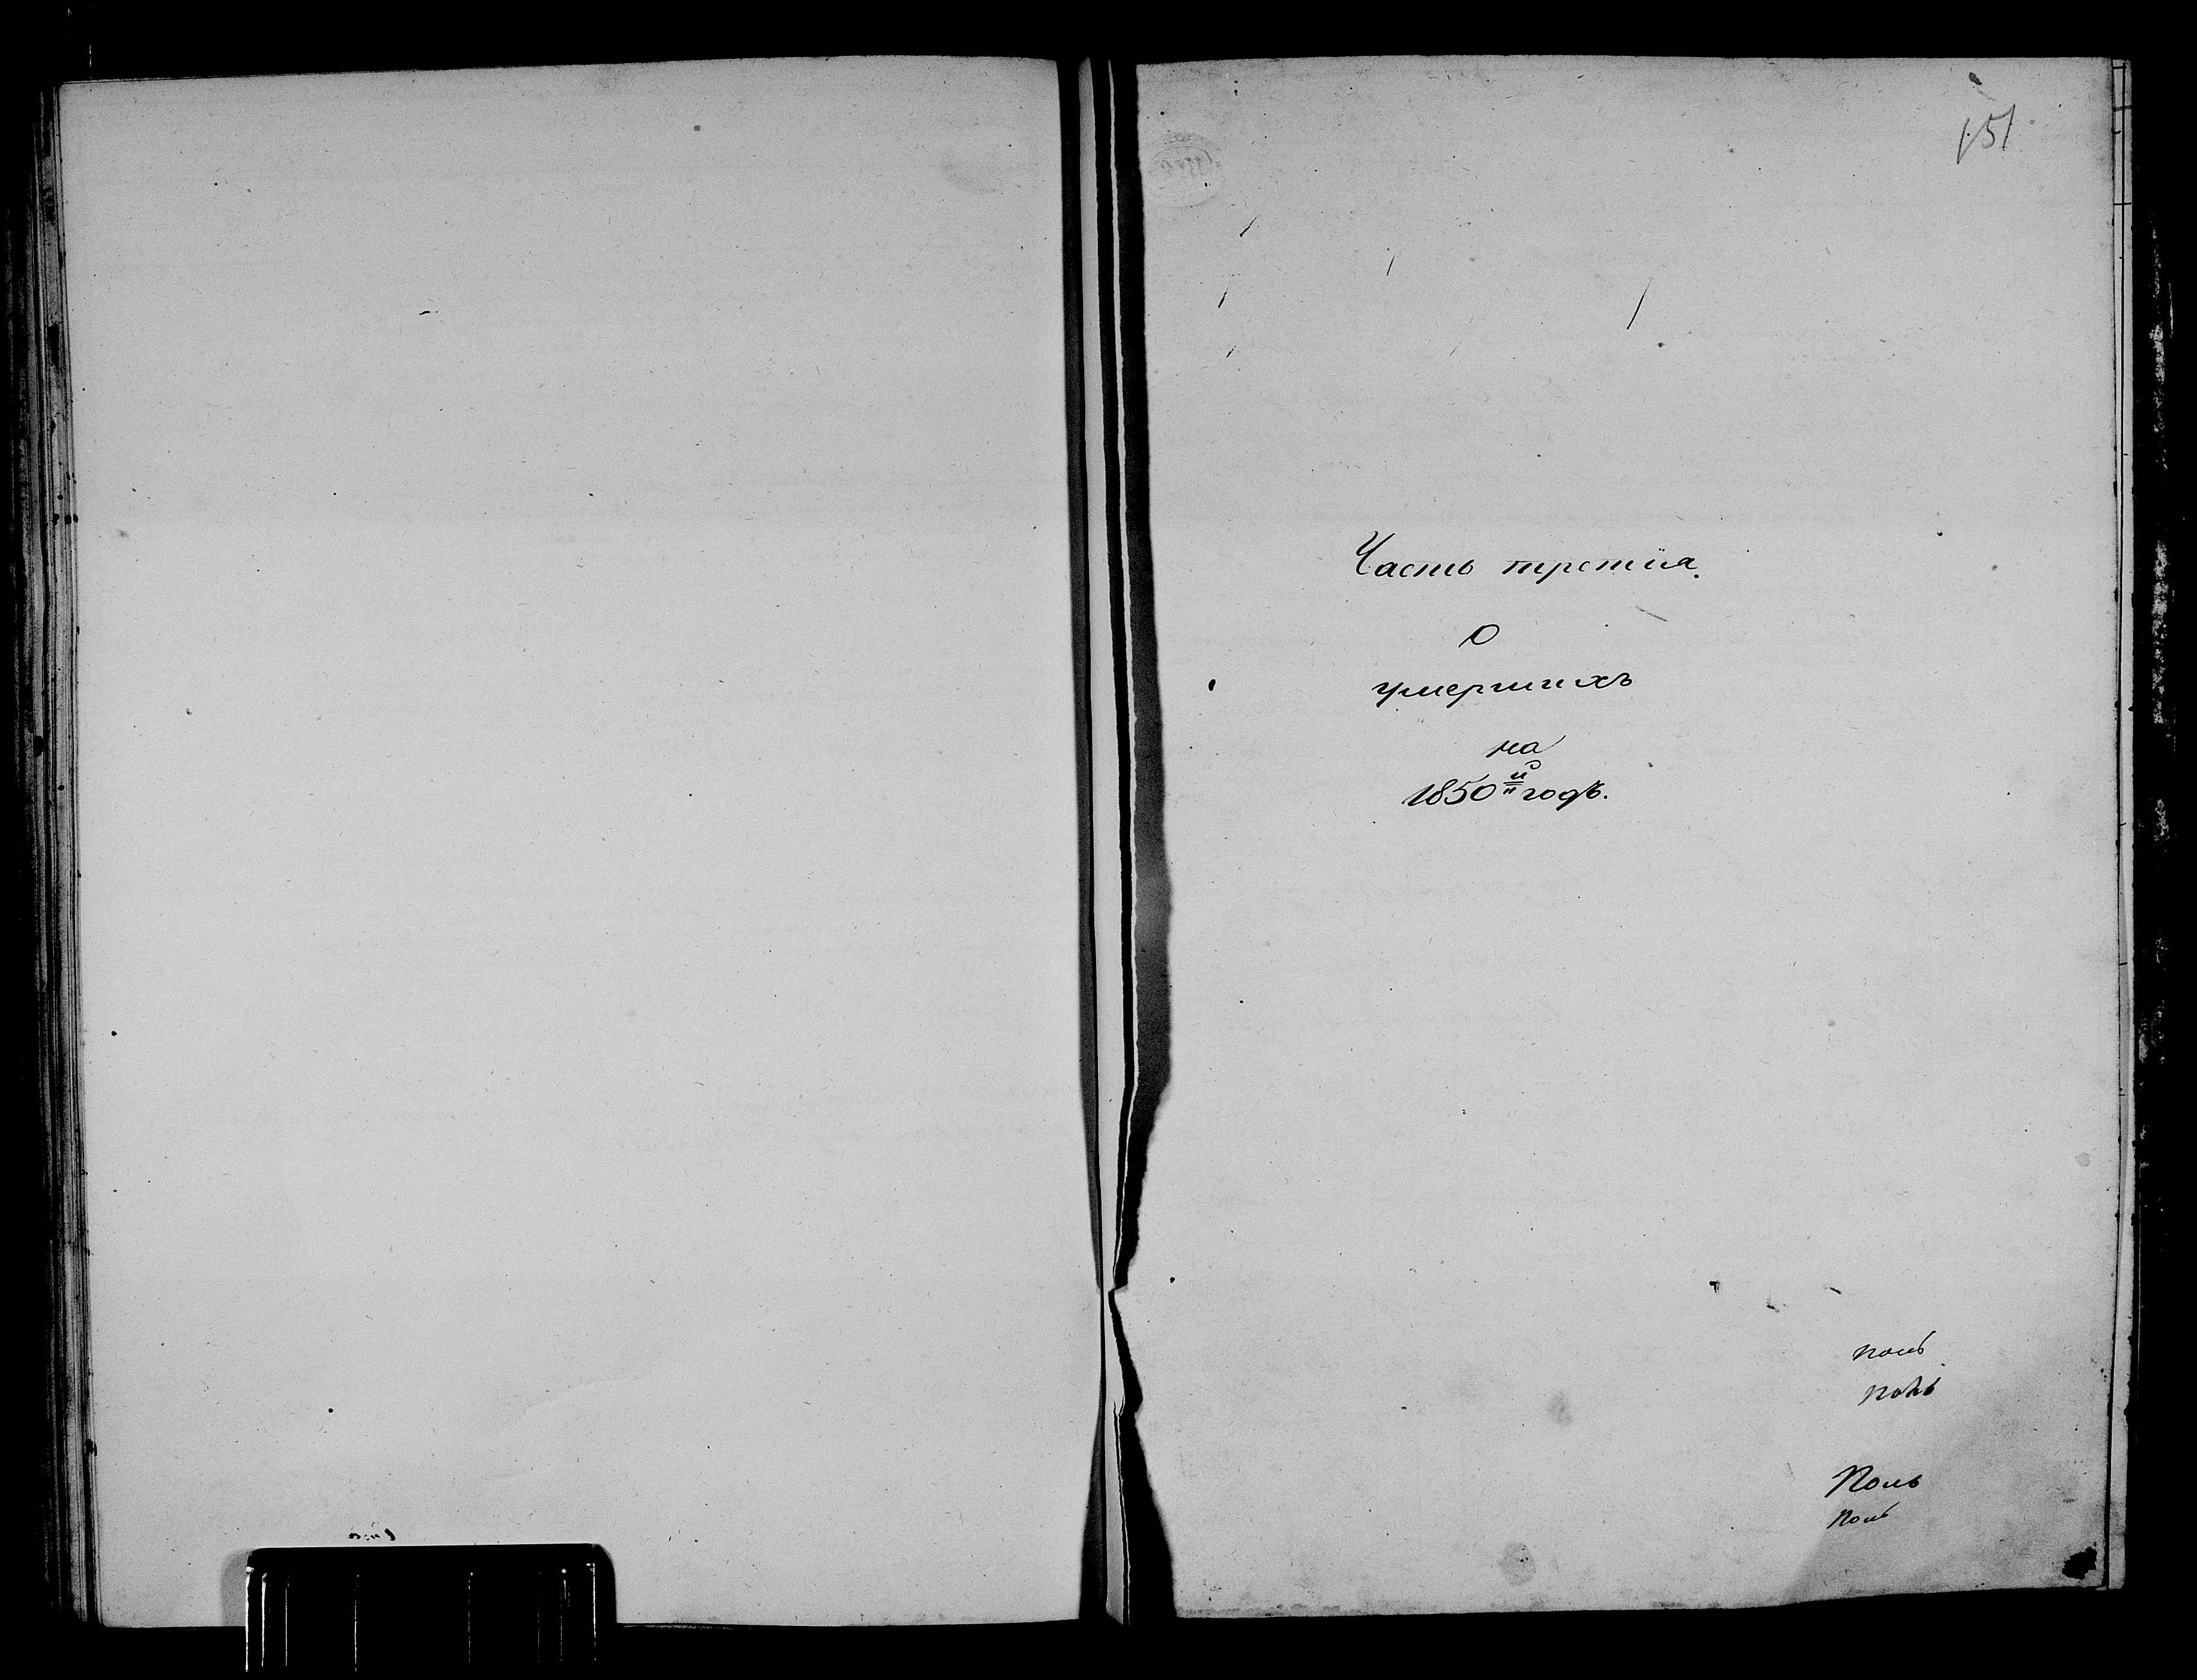 151
Часть третія.
О
умершихъ
на
1850й годъ.
поль
поль
Поль
Поль